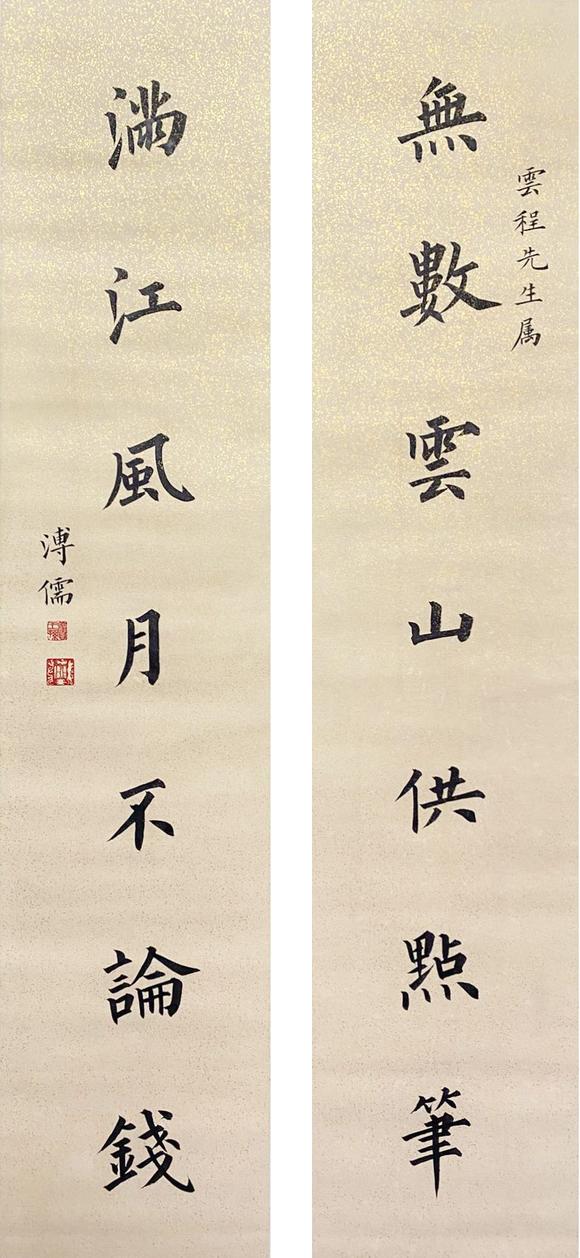 雲程先生属
無數雲山供點筆
滿江風月不論錢
溥儒